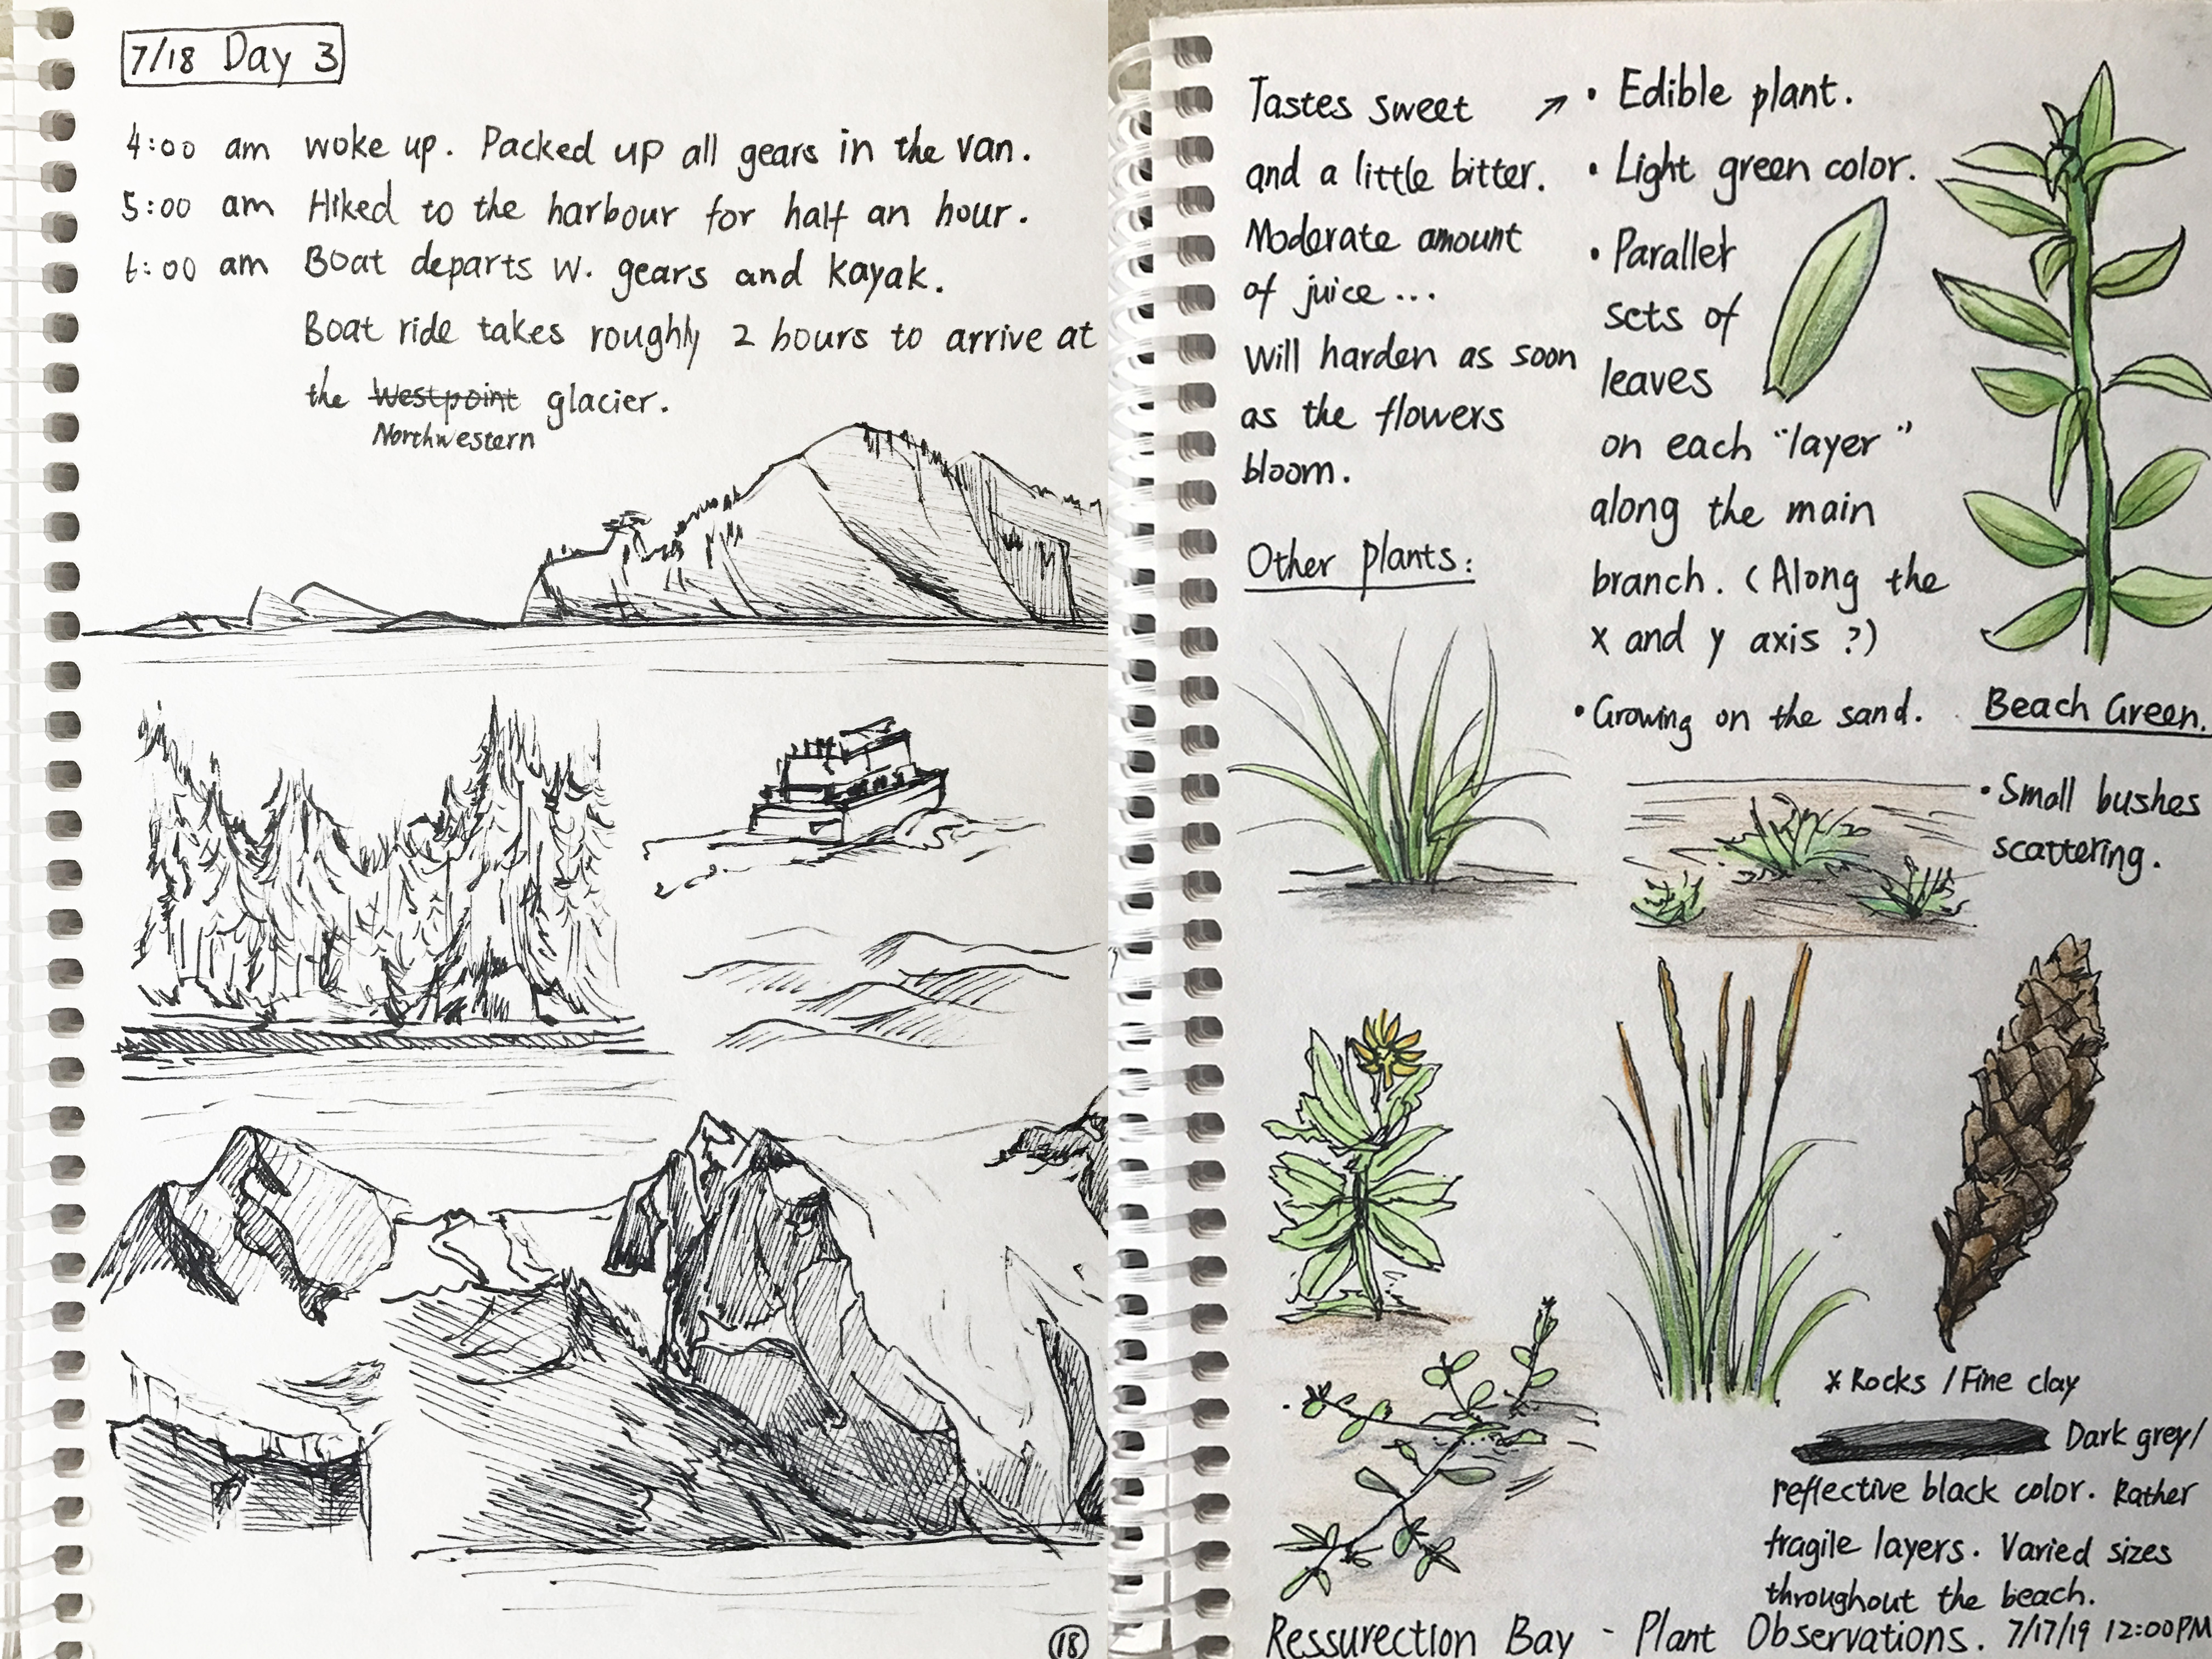 7/18 Day 3
4:00 am woke up. Packed up all gears in the van.
5:00 am Hiked to the harbour for half an hour.
6:00 am Boat departs w. gears and kayak.
Boat ride takes roughly 2 hours to arrive at
the Westpoint glacier.
Northwestern
18
Tastes sweet
and a little bitter.
Moderate amount
of juice...
Will harden as soon
as the flowers
bloom.
Other plants:
• Edible plant.
• Light green color.
• Parallel
sets of
leaves
on each "layer"
along the main
branch. (Along the
x and y axis ?)
• Growing on the sand.
Beach Green.
• Small bushes
scattering.
x Rocks / Fine clay
Dark grey/
reflective black color. Rather
fragile layers. Varied sizes
throughout the beach.
Ressurection Bay - Plant Observations. 7/17/19 12:00PM